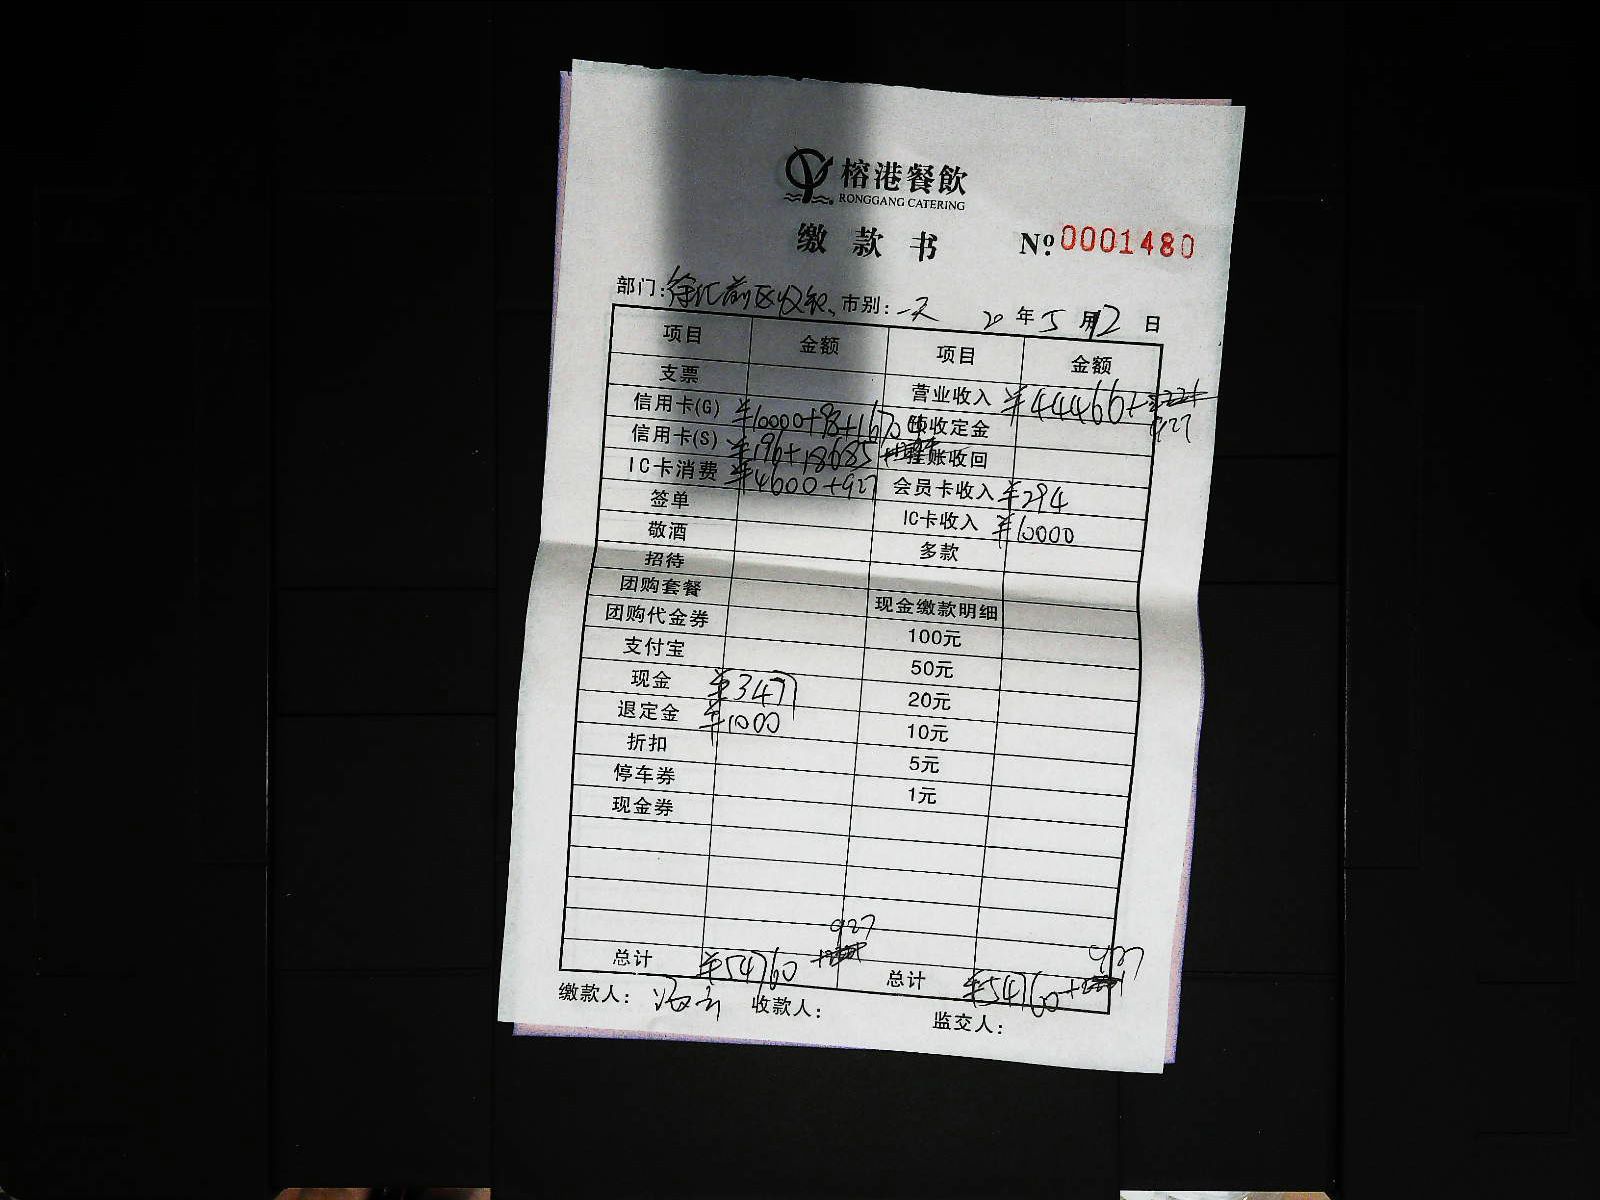 榕港餐飲
RONGGANG CATERING
缴款书 Nº 0001480
部门: 徐汇前区收银 市别: 一天 20年5月12日
项目 金额 项目 金额
支票 营业收入 ¥44466+927
信用卡(G) ¥10000+98+16704 预收定金
信用卡(S) ¥196+18685 挂账收回
IC卡消费 ¥4600+927 会员卡收入 ¥294
签单 IC卡收入 ¥10000
敬酒 多款
招待
团购套餐 现金缴款明细
团购代金券 100元
支付宝 50元
现金 ¥3477 20元
退定金 ¥1000 10元
折扣 5元
停车券 1元
现金券
总计 ¥54760 927 总计 ¥54760+927
缴款人: 收款人: 监交人: